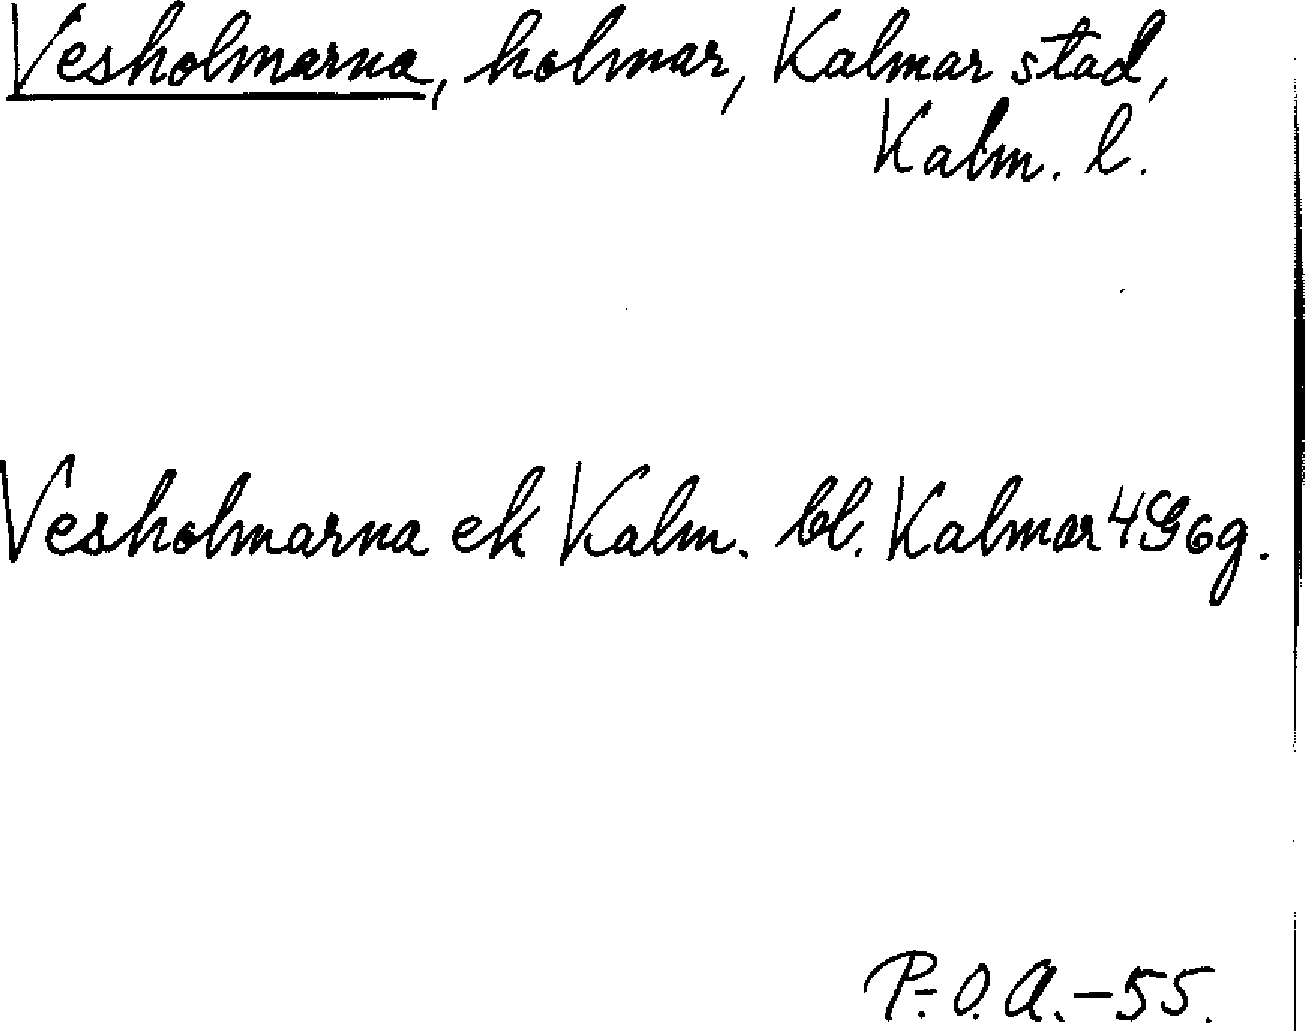 Vesholmarna, holmar, Kalmar stad,
Kalm. l.
Vesholmarna ek Kalm. bl. Kalmar 4G6g.
P.-O.A.-55.